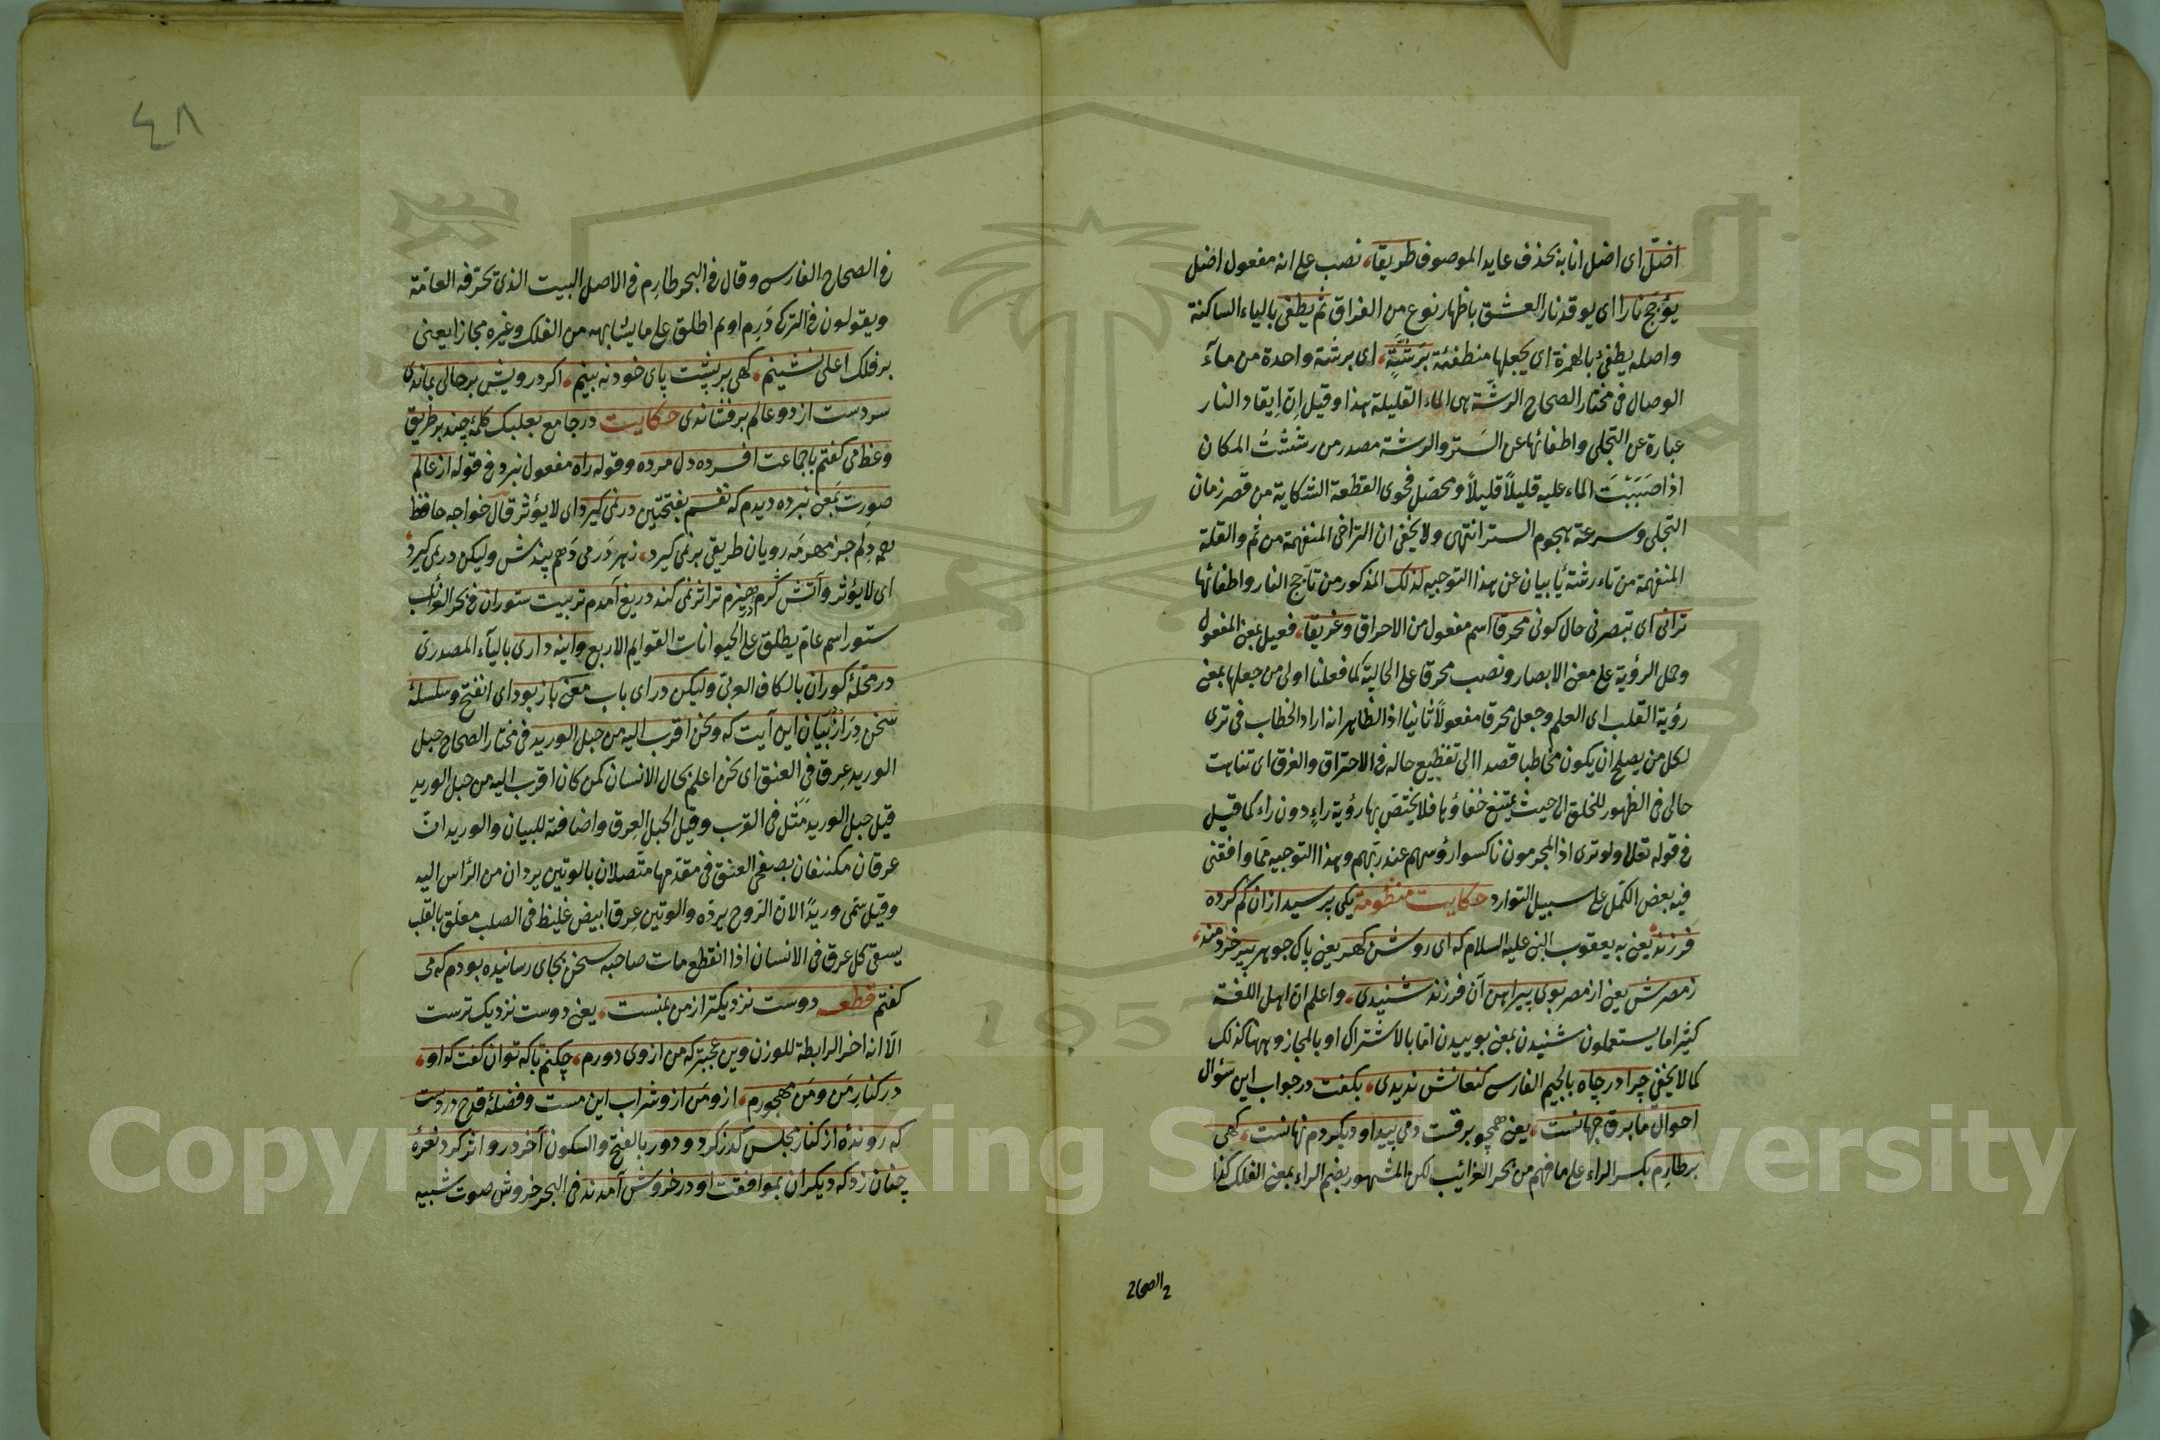 اضلّ اى اضل انا به بحذف عايد الموصوف طريقا، نصب على انه مفعول اضل
يؤجج نارا اى يوقد نار العشق باظهار نوع من الفراق ثم يطفى بالياء الساكنة
واصله يطفئ بالهمزة اى يجعلها منطفئة برشّة، اى برشة واحدة من ماء
الوصال فى مختار الصحاح الرشّة هى الماء القليلة هذا وقيل ان ايقاد النار
عبارة عن التجلى واطفائها عن الستر والرشة مصدر من رششت المكان
اذا صببت الماء عليه قليلا قليلا ومحصل فحوى القطعة الشكاية من قصر زمان
التجلى وسرعة هجوم الستر انتهى ولا يخفى ان التراخى المنفهمة من ثم والقلة
المنفهمة من تاء رشة يأبيان عن هذا التوجيه لذلك المذكور من تأجج النار واطفائها
ترانى اى تبصرنى حال كونى محرقا اسم مفعول من الاحراق وغريقا، فعيل بمعن المفعول
وحمل الرؤية على معن الابصار ونصب محرقا على الحالية كما فعلنا اولى من جعلها بمعن
رؤية القلب اى العلم وجعل محرقا مفعولا ثانيا اذ الظاهر انه اراد الخطاب فى ترى
لكل من يصلح ان يكون مخاطبا قصدا الى تفظيع حاله فى الاحتراق والغرق اى تناهت
حالى فى الظهور للخلق الى حيث يمتنع خفاؤها فلا يختص بها رؤية راءٍ دون راء كما قيل
فى قوله تعالى ولو ترى اذ المجرمون ناكسوا رؤسهم عند ربهم وهذا التوجيه مما وافقنى
فيه بعض الكمل على سبيل التوارد حكايت منظومة يكى پرسيد ازان كم كرده
فرزند يعن به يعقوب النبى عليه السلام كه اى روشن كهر يعن پاك جوهر پير خردمند،
زمصرش يعن از مصر بوى پيراهن آن فرزند شنيدى، واعلم ان اهل اللغة
كثيرا ما يستعملون شنيدن بمعن بوييدن اما بالاشتراك او بالمجاز وههنا كذلك
كما لا يخفى چرا در چاه بالجيم الفارسى كنعانش نديدى، بكفت در جواب اين سؤال
احوال ما برق جهانست، يعن همچو برقست دمى پيدا و ديكر دم نهانست، كهى
بر طارم بكسر الراء على ما فهم من بحر الغرائب لكن المشهور بضم الراء بمعن الفلك كذا
فى الصحاح
٤٨
فى الصحاح الفارسى وقال فى البحر طارِم فى الاصل البيت الذى تحرقه العامّة
ويقولون فى التركى دَرِم اوم اطلق على ما يشابهه من الفلك وغيره مجازا يعنى
بر فلك اعلى نشينم، كهى بر پشت پاى خود نه بينم، اكر درويش بر حالى بماندى
سر دست از دو عالم برفشاندى حكايت در جامع بعلبك كلمهٔ چند بر طريق
وعظ مى كفتم با جماعت افسرده دل مرده وقوله راه مفعول نبرد فى قوله از عالم
صورت بمعن نبرده ديدم كه نفسم بفتحتين در نمى كيرد اى لا يؤثر قال خواجه حافظ
دلم جز مهر مه رويان طريقى بر نمى كيرد، زهر در مى دهم پندش وليكن در نمى كيرد
اى لا يؤثر وآتش كرم هيزم تر اثر نمى كند دريغ آمدم تربيت ستوران فى بحر الغرائب
ستور اسم عام يطلق على الحيوانات القوايم الاربع واينه دارى بالياء المصدرى
در محلهٔ كوران بالكاف العربى وليكن در اى باب معن باز بود اى انفتح وسلسلهٔ
سخن دراز در بيان اين آيت كه ونحن اقرب اليه من حبل الوريد فى مختار الصحاح حبل
الوريد عرق فى العنق اى نحن اعلم بحال الانسان كمن كان اقرب اليه من حبل الوريد
قيل حبل الوريد مثل فى القرب وقيل الحبل العرق واضافته للبيان والوريدان
عرقان مكتنفان بصفحى العنق فى مقدمها متصلان بالوتين يردان من الراس اليه
وقيل سمى وريدا لان الروح يرده والوتين عرق ابيض غليظ فى الصلب معلق بالقلب
يسقى كل عرق فى الانسان اذا انقطع مات صاحبه سخن بجاى رسانيده بودم كه مى
كفتم قطعه دوست نزديكتر از من بمنست، يعن دوست نزديك ترست
الا انه اخر الرابطة للوزن وين عجبتر كه من از وى دورم، چكنم با كه توان كفت كه او،
در كنار من ومن مهجورم، از ومن از وشراب اين مست وفضلهٔ قدح در دست
كه روندهٔ از كنار مجلس كذر كرد ودور بالفتح والسكون آخر درو اثر كرد نعرهٔ
چنان زد كه ديكران بموافقت او در خروش آمدند فى البحر خروش صوت شبيه
Copyright © King Saud University
1957